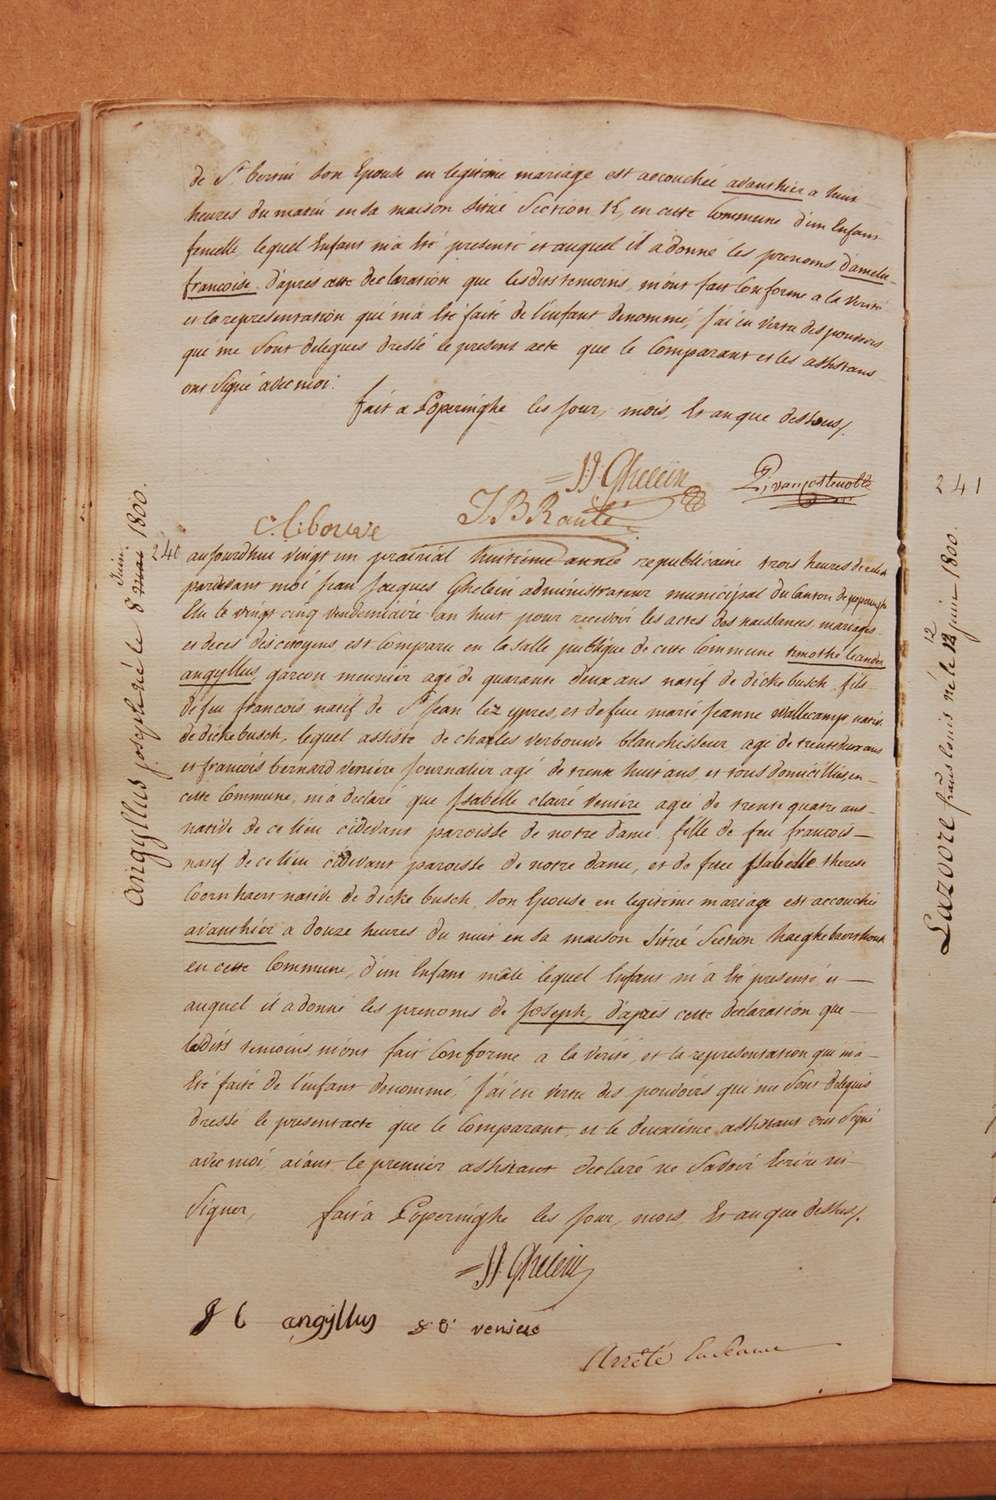 de St. bertin son Epouse en legitime mariage est accouchée avanthier a huit
heures du matin en sa maison situé Section K, en cette Commune d'un Enfant
femelle, lequel Enfant m'a été presenté et auquel il a donné les prenoms d'amelie
francoise, d'apres cette declaration que lesdits temoins m'ont fait Conforme a la verité
et la representation qui m'a été faite de l'enfant denommé, j'ai en vertu des pouvoirs
qui me sont delegués dressé le present acte que le Comparant et les assistans
ont Signé avec moi.
fait a Poperinghe les Jour, mois, Et an que dessus/.
J.J. Ghelein
P. van costenoble
C. L. bouwe
J B Ranté
angyllus josephné le 8 mai Juin 1800.
240 aujourdhui vingt un prairial huitieme année republicaine trois heures de relevé
pardevant moi Jean Jacques Ghelein administrateur municipal du Canton de poperinghe
Elu le vingt cinq vendemiaire an huit pour recevoir les actes des naissances, mariages
et deces des citoyens est comparu en la salle publique de cette Commune timothé leander
angyllus, garcon meunier agé de quarante deux ans natif de dickebusch, fils
de feu francois natif de St. Jean lez ypres, et de feue marie Jeanne Wallecamps native
de dickebusch, lequel assisté de charles verbouwe blanchisseur agé de trente deux ans
et francois bernard veniere journalier agé de trente huit ans, et tous domiciliés en
cette Commune, m'a declaré que Isabelle claire veniere agée de trente quatre ans
native de ce lieu cidevant paroisse de notre dame, fille de feu francois
natif de ce lieu cidevant paroisse de notre dame, et de feue Isabelle therese
Coornhaert native de dickebusch, son Epouse en legitime mariage est accouchée
avanthier a douze heures du nuit en sa maison situé Section haeghebaerthouck
en cette Commune, d'un Enfant mâle lequel Enfant m'a été presenté, et
auquel il a donné les prenoms de Joseph, d'apres cette declaration que
lesdits temoins m'ont fait Conforme a la verité, et la representation qui m'a
été faite de l'enfant denommé, j'ai en vertu des pouvoirs qui me sont delegués
dressé le present acte que le Comparant, et le deuxième assistant ont Signé
avec moi, aiant le premier assistant declaré ne savoir Ecrire ni
Signer, fait à Poperinghe les Jour, mois, Et an que dessus/.
J.J. Ghelein
angyllus veniere
Arrêté En Seance
241
Lazoore frans louis né le 12 juin 1800.